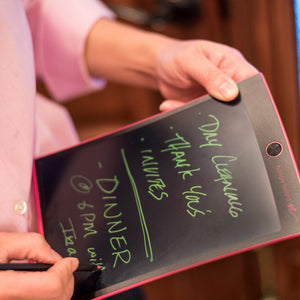 · Day Cleaning
· Thank you's
· Invites
- Dinner
@ 6pm with